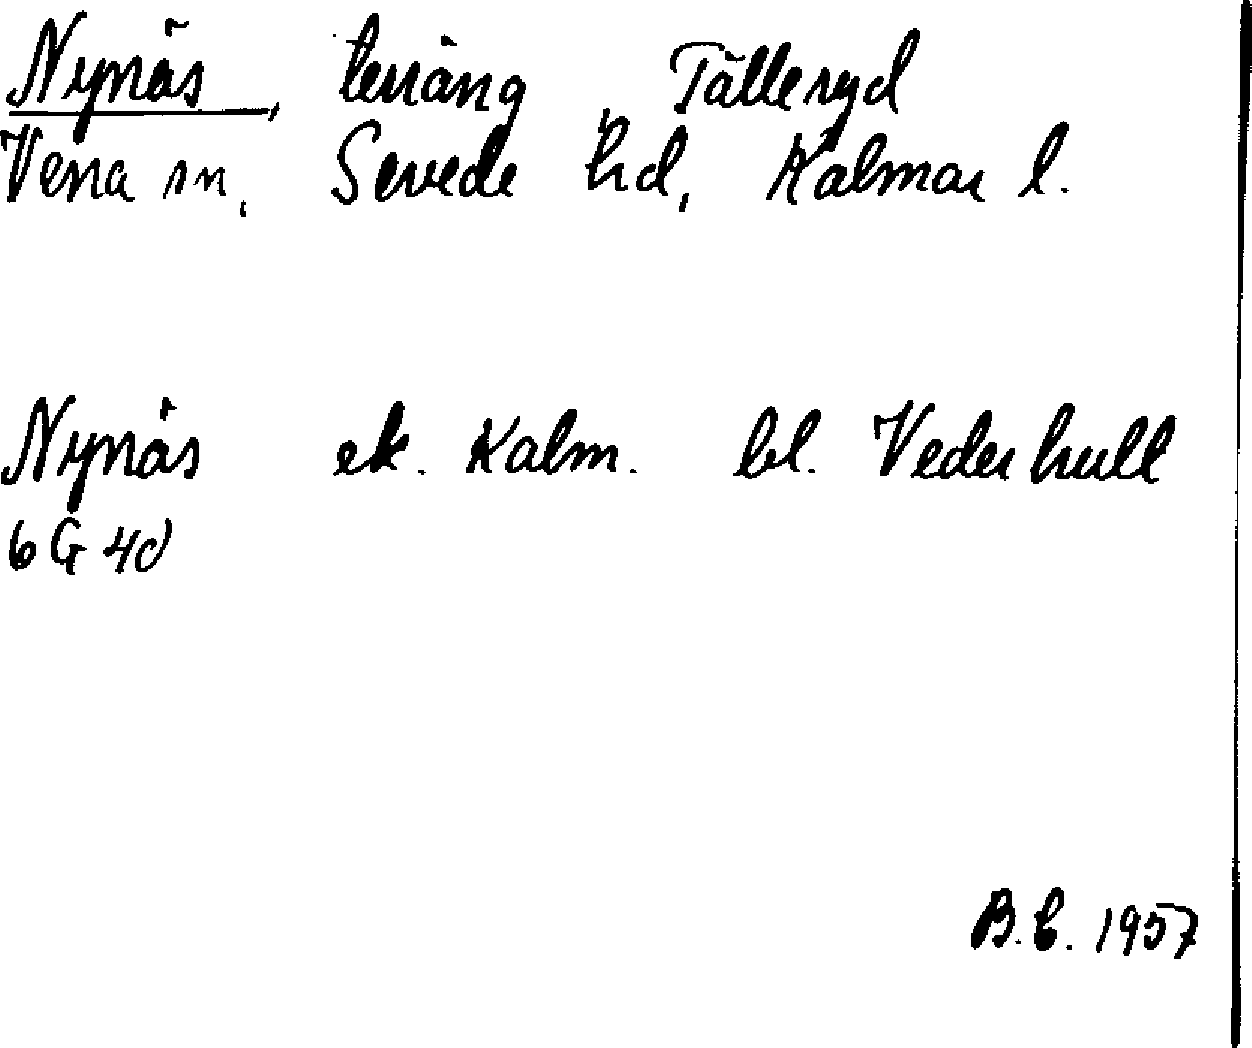 Nynäs, terräng, Tälleryd
Vena sn, Sevede hd, Kalmar l.
Nynäs ek. Kalm. bl. Vederhull
6 G 4d
B.b. 1957